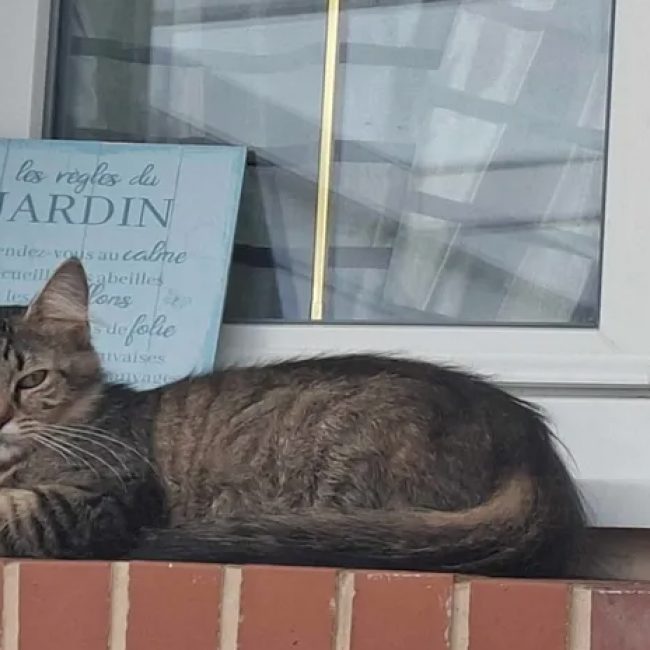 les règles du
JARDIN
endez-vous au calme
cueill abeilles
les llons
s de folie
auvaises
auvages